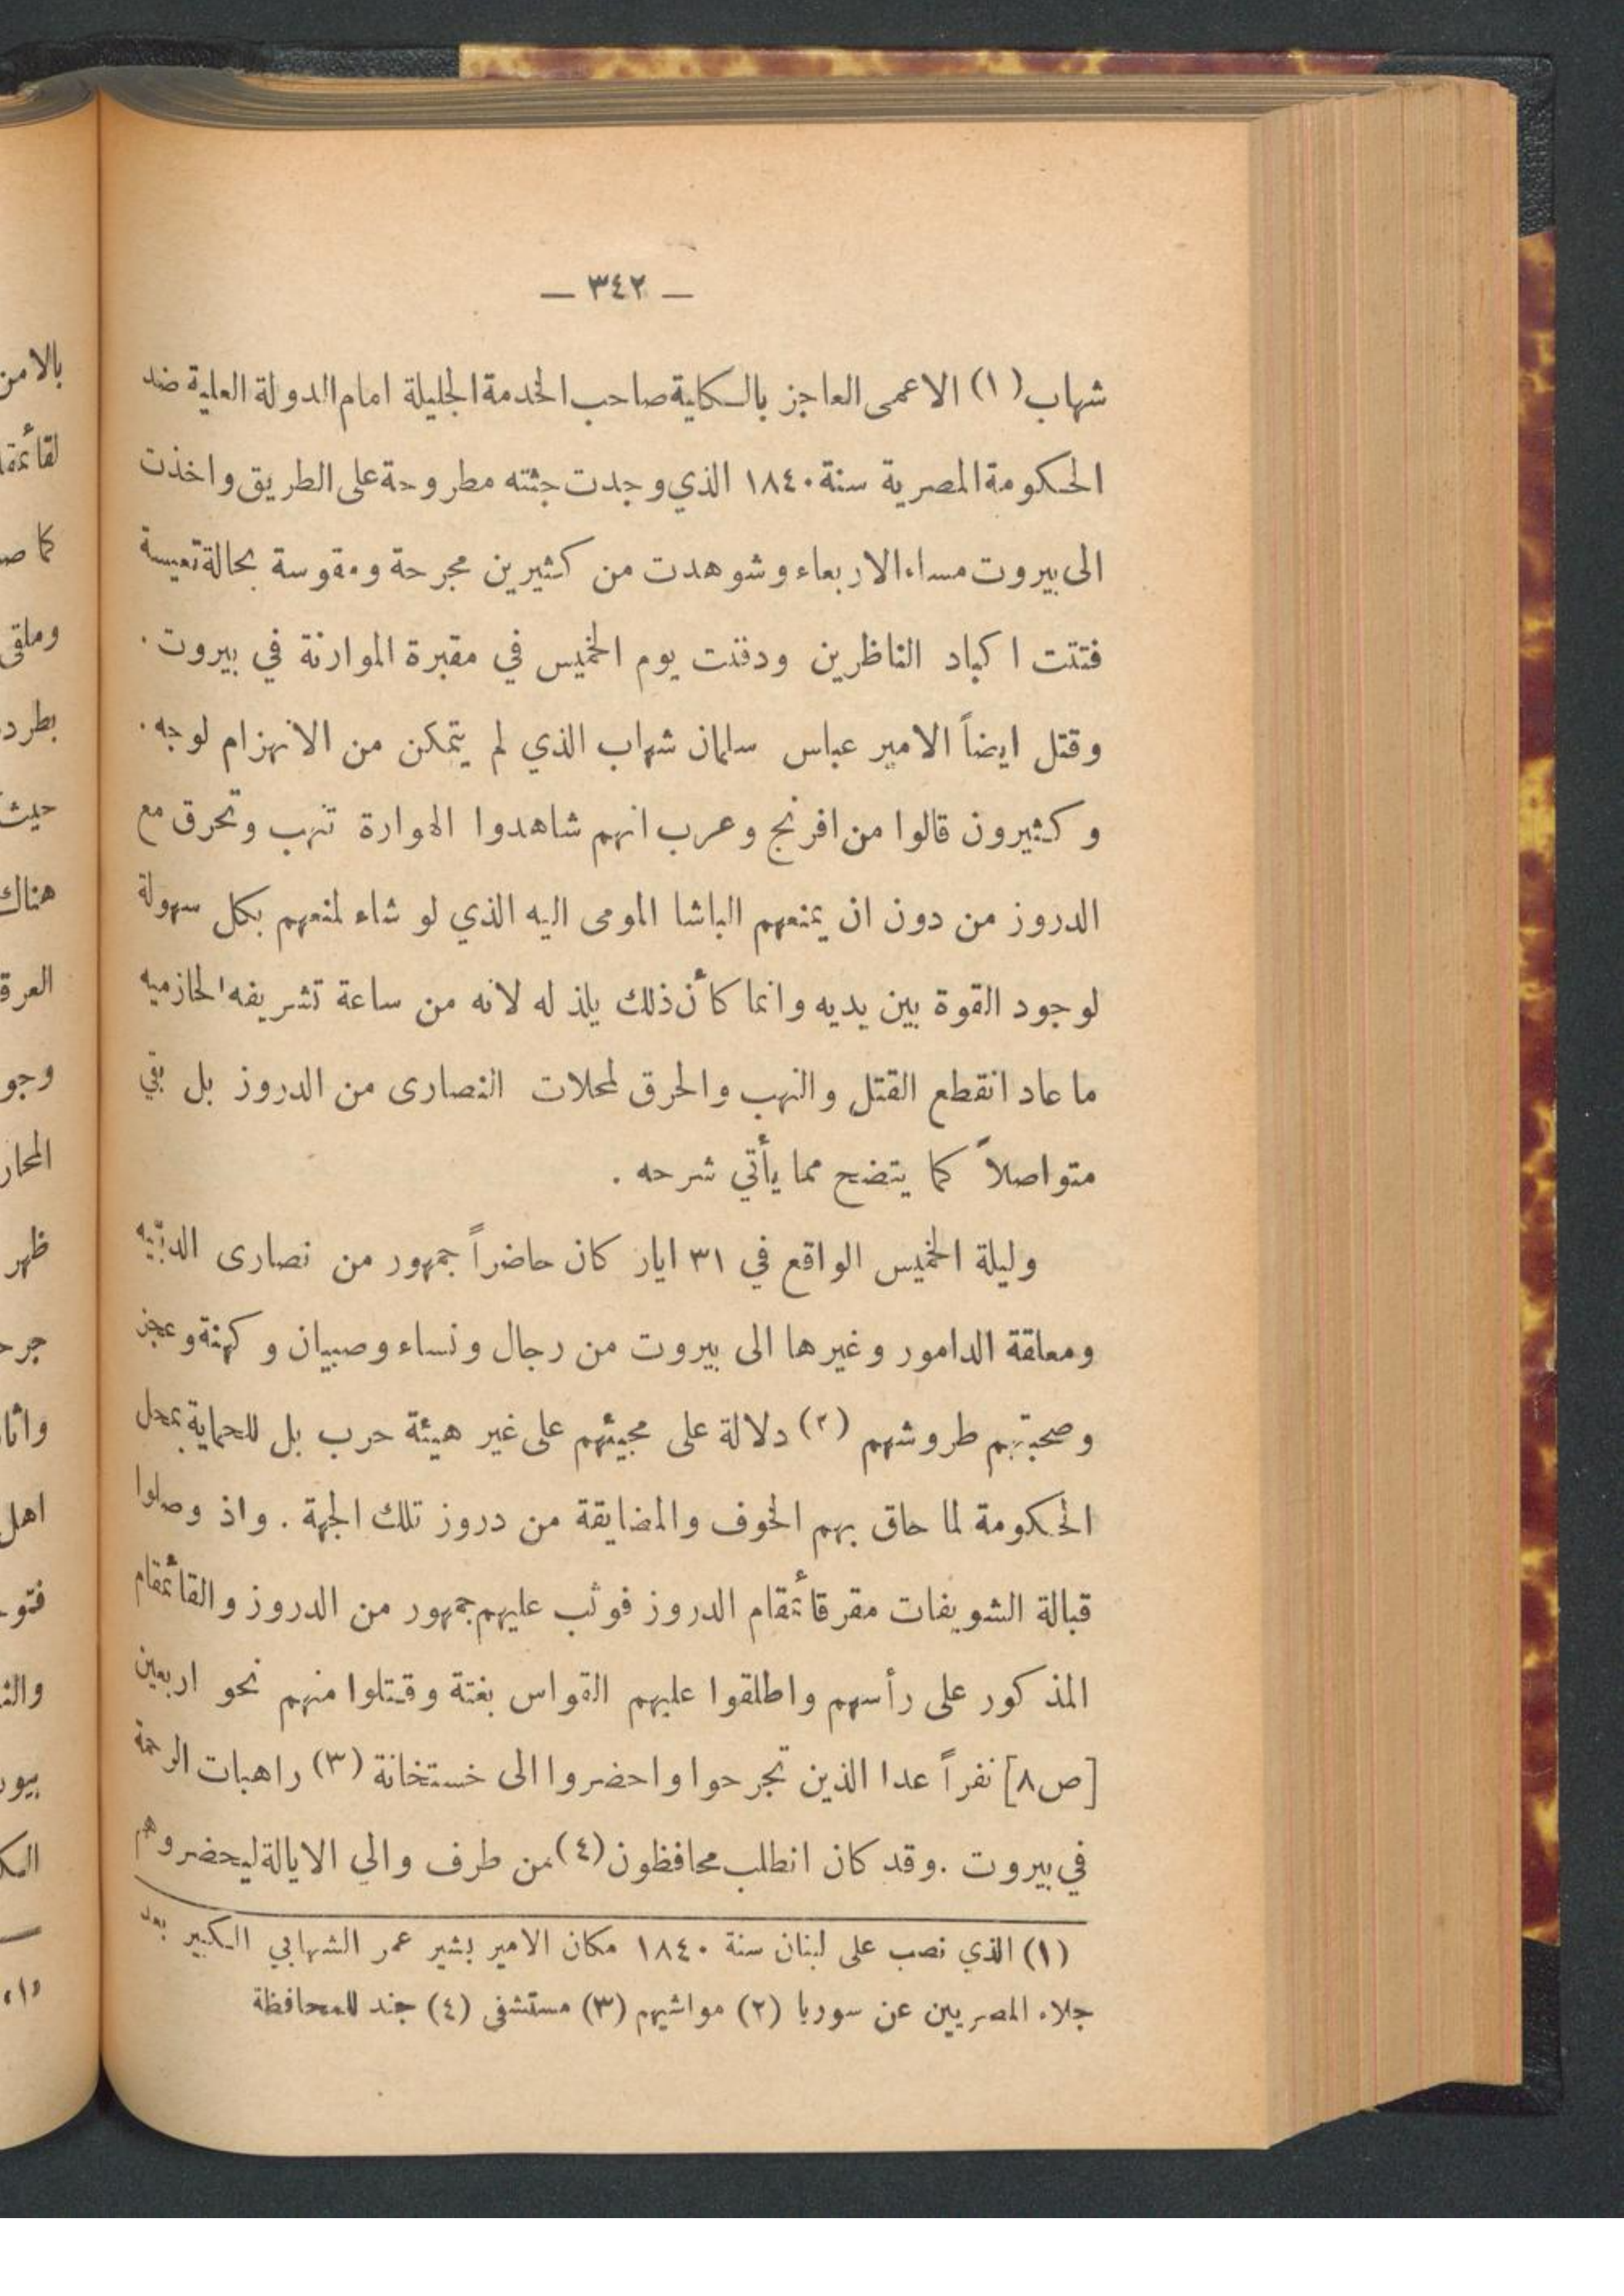 — ٣٤٢ —
شهاب (١) الاعمى العاجز بالكلية صاحب الخدمة الجليلة امام الدولة العلية ضد
الحكومة المصرية سنة ١٨٤٠ الذي وجدت جثته مطروحة على الطريق واخذت
الى بيروت مساء الاربعاء وشوهدت من كثيرين مجرحة ومقوسة بحالة تعيسة
فتتت اكباد الناظرين ودفنت يوم الخميس في مقبرة الموارنة في بيروت .
وقتل ايضاً الامير عباس سلمان شهاب الذي لم يتمكن من الانهزام لوجه .
وكثيرون قالوا من افرنج وعرب انهم شاهدوا الهوارة تنهب وتحرق مع
الدروز من دون ان يمنعهم الباشا المومى اليه الذي لو شاء لمنعهم بكل سهولة
لوجود القوة بين يديه وانما كأن ذلك يلذ له لانه من ساعة تشريفه الحازميه
ما عاد انقطع القتل والنهب والحرق لمحلات النصارى من الدروز بل بقي
متواصلاً كما يتضح مما يأتي شرحه .
وليلة الخميس الواقع في ٣١ ايار كان حاضراً جمهور من نصارى الدبّيه
ومعلقة الدامور وغيرها الى بيروت من رجال ونساء وصبيان وكهنة وعجز
وصحبتهم طروشهم (٢) دلالة على مجيئهم على غير هيئة حرب بل للحماية بمحل
الحكومة لما حاق بهم الخوف والمضايقة من دروز تلك الجهة . واذ وصلوا
قبالة الشويفات مقر قائمقام الدروز فوثب عليهم جمهور من الدروز والقائمقام
المذكور على رأسهم واطلقوا عليهم القواس بغتة وقتلوا منهم نحو اربعين
[ص٨] نفراً عدا الذين تجرحوا واحضروا الى خستخانة (٣) راهبات الرحمة
في بيروت . وقد كان انطلب محافظون (٤) من طرف والي الايالة ليحضروهم
(١) الذي نصب على لبنان سنة ١٨٤٠ مكان الامير بشير عمر الشهابي الكبير بعد
جلاء المصريين عن سوريا (٢) مواشيهم (٣) مستشفى (٤) جند للمحافظة